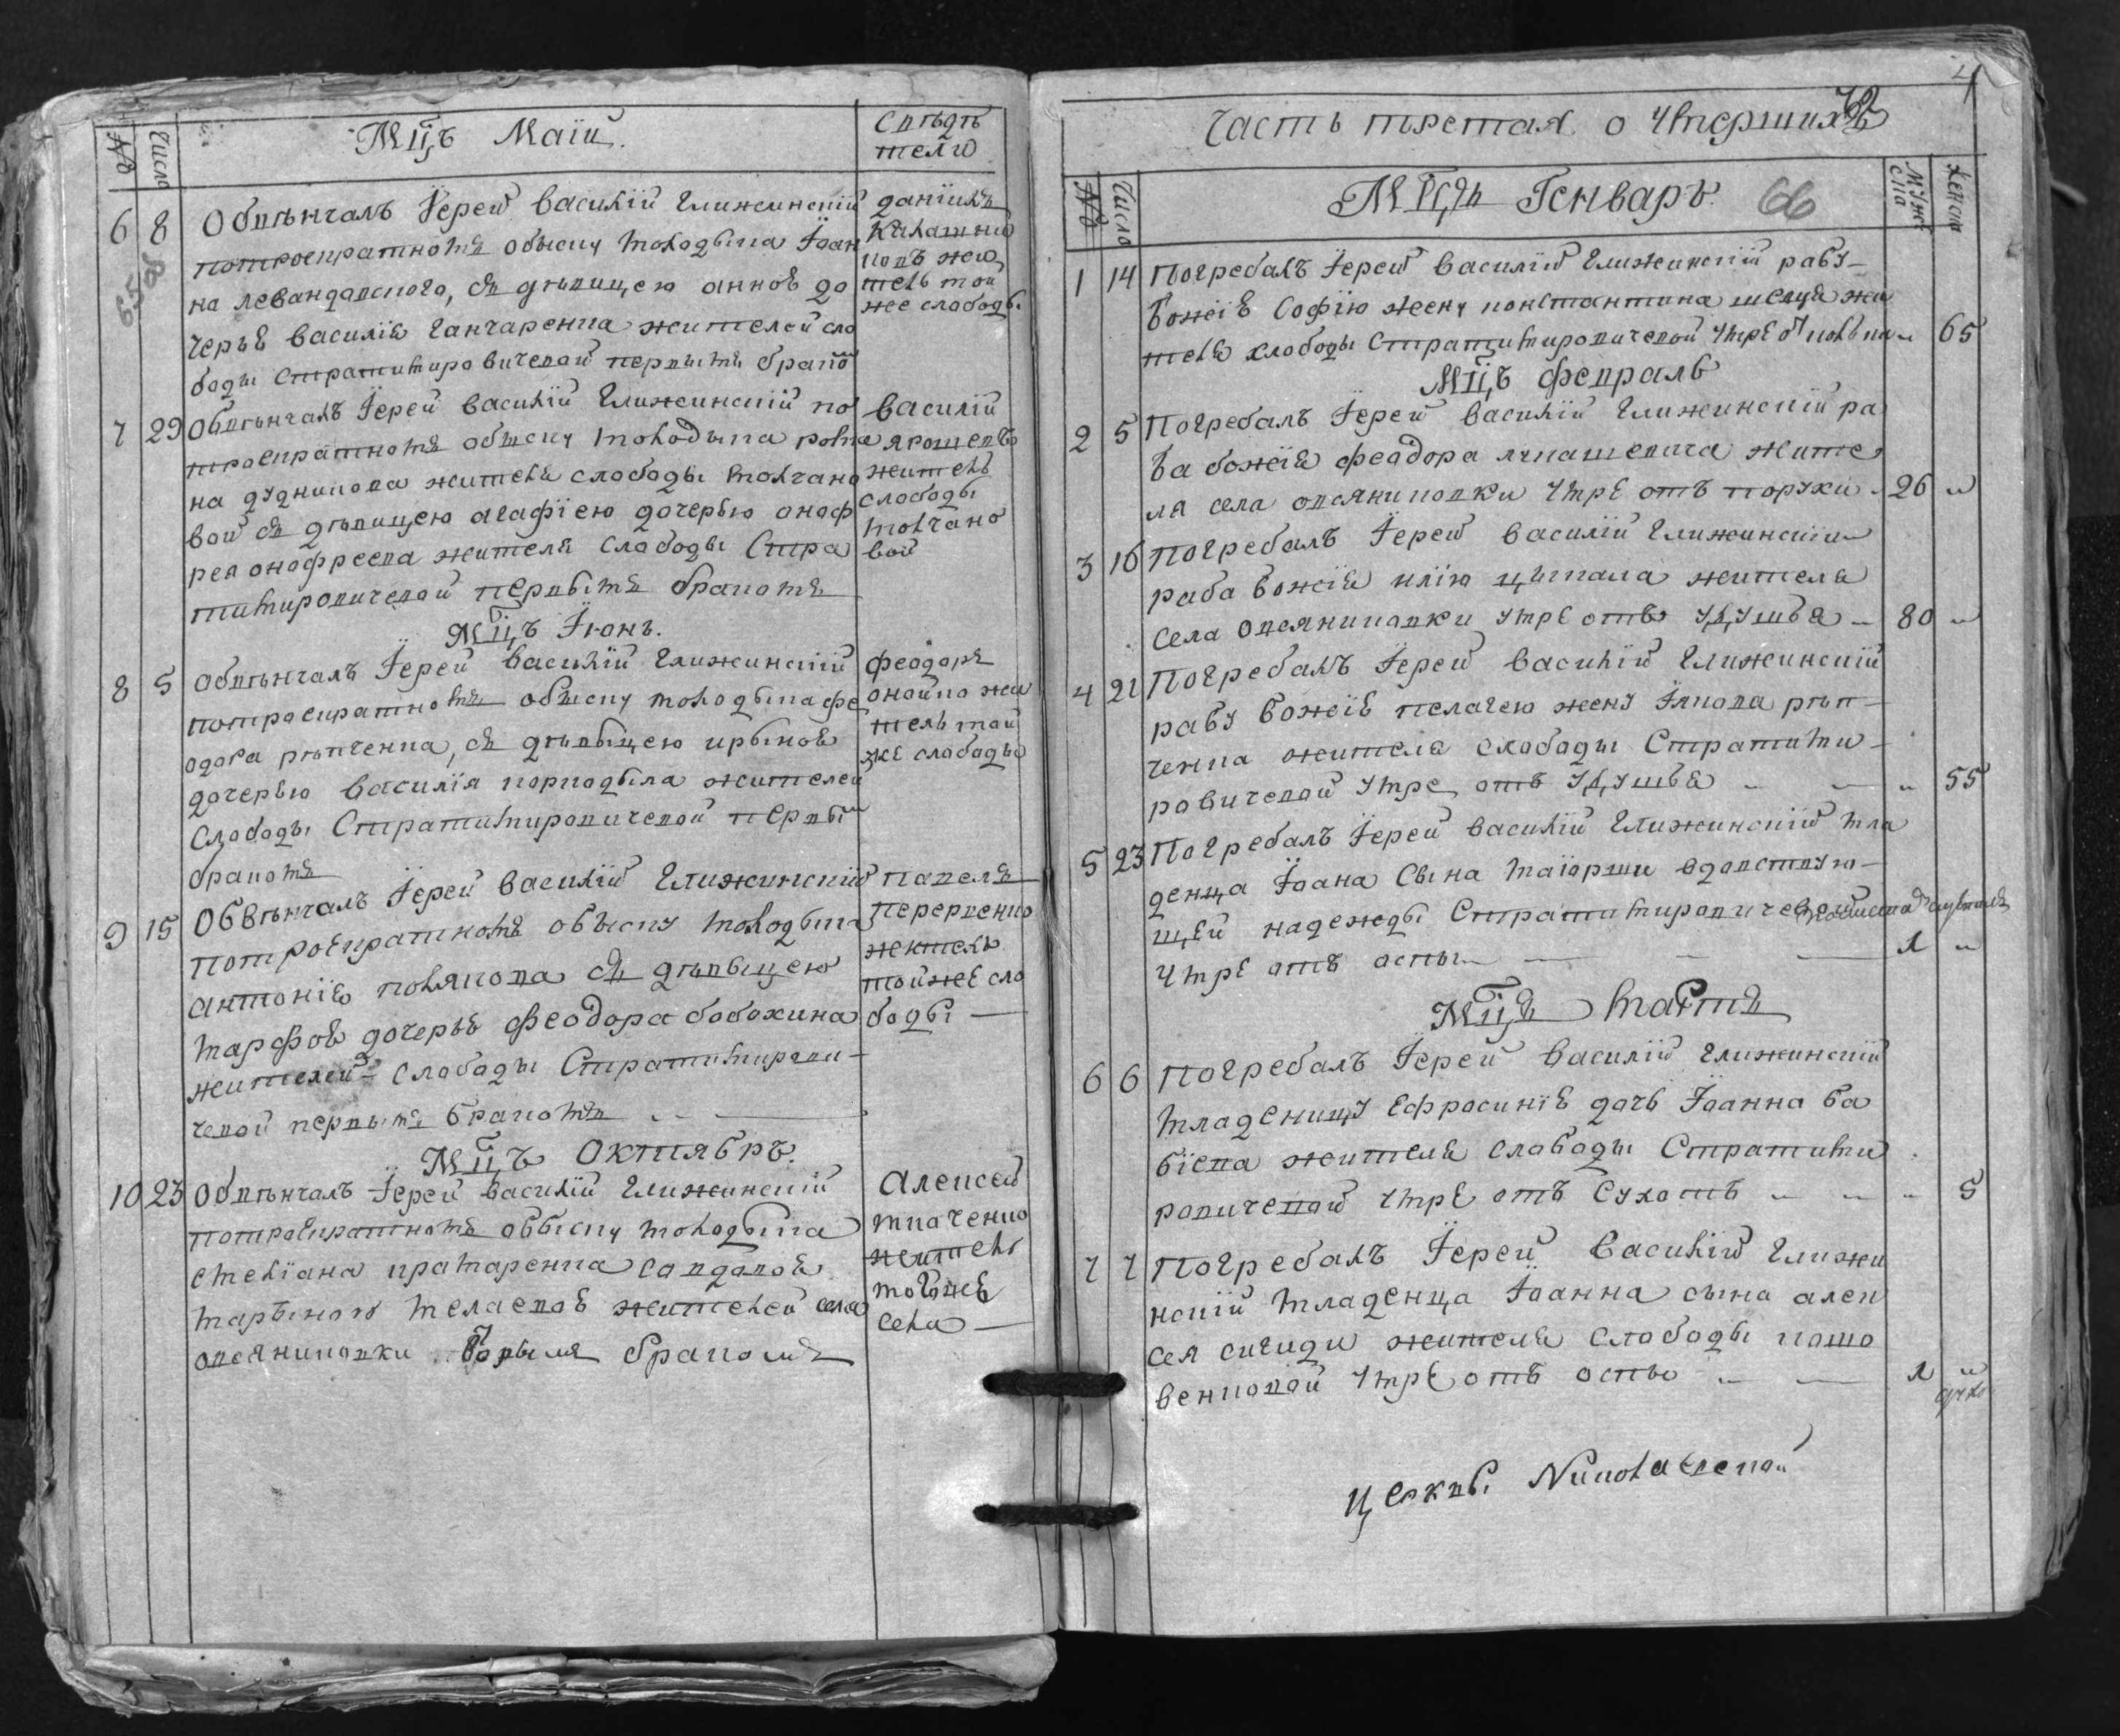 №
Число
Мцъ Маїи.
Свѣдѣ
тели
6 8 Обвѣнчалъ Їерей Василій Глижинскій
потроекратномъ обыску молодыка Їоан
на левандовского, съ дѣвицею анною до
черъю василія Ганчаренка жителей сло
боды Стратимировичевой первымъ бракō
данїилъ
Калашни
ковъ жи
тель той
же слободы
7 29 Обвѣнчалъ Їерей василій Глижинскій по
троекратномъ обыску молодыка рома
на дудникова жителя слободы молчано
вой съ дѣвицею агафією дочерью оноф
рея онофреева жителя слободы Стра
тимировичевой первымъ бракомъ
василій
ярошевъ
житель
слободы
молчано
вой
Мцъ Їюнь.
8 5 обвѣнчалъ Їерей василій Глижинскій
потроекратномъ обыску молодыка фе
одора рѣпченка, съ дѣвыцею ирыною
дочерью василія корнодыла жителей
слободы Стратимировичевой первы
бракомъ
феодоръ
онойко жи
тель той
же слободы
9 15 Обвѣнчалъ Їерей василій Глижинскій
потроекратномъ обыску молодыка
антонія полякова съ дѣвыцею
марфою дочерью феодора бобохина
жителей слободы Стратимирови-
чевой первымъ бракомъ
павелъ
переренко
житель
тойже сло
боды
Мцъ Октиябръ.
10 23 обвѣнчалъ Їерей василій Глижинскій
потроекратномъ обыску молодыка
стеліана кратаренка совдовою
марыною желаевою жителей села
овсяниковки вторымъ бракомъ
Алексей
ткаченко
житель
тогожъ
села
65 об
4
Часть третая о умершихъ
62
№
Число
Мсцъ Генваръ.
66
Мужс
ска
Женска
1 14 Погребалъ Їерей василій Глижинскій рабу
божїю Софїю жену константина шевця жи
теля слободы Стратимировичевой умре 65
Мцъ февраль
2 5 Погребалъ Їерей василій Глижинскій ра
ба божїя феодора лукашевича жите
ля села овсяниковки умре отъ порухи 26 „
3 16 погребалъ Їерей василій Глижинскій
раба божїя илїю цымбала жителя
села овсяниковки умре отъ удушъя 80 „
4 21 Погребалъ Їерей василій Глижинскій
рабу божїю пелагею жену Їякова рѣп-
ченка жителя слободы Стратими-
ровичевой умре отъ удушъя „ 55
5 23 Погребалъ Їерей василій Глижинскій мла
денца Їоана Сына маїорши вдовствую-
щей надежды Стратимировичевой
умре отъ оспы 1 „
Мцъ Мартъ
6 6 Погребалъ Їерей василій Глижинскій
младеницу Ефросинїю дочь Їоанна ба
бїева жителя слободы Стратими
ровичевой умре отъ сухотъ „ 5
7 7 Погребалъ Їерей василій Глижи
нскій младенца Їоанна сына алек
сея сигиди жителя слободы кото
венковой умре отъ оспы 1 „
церкви Николаевской